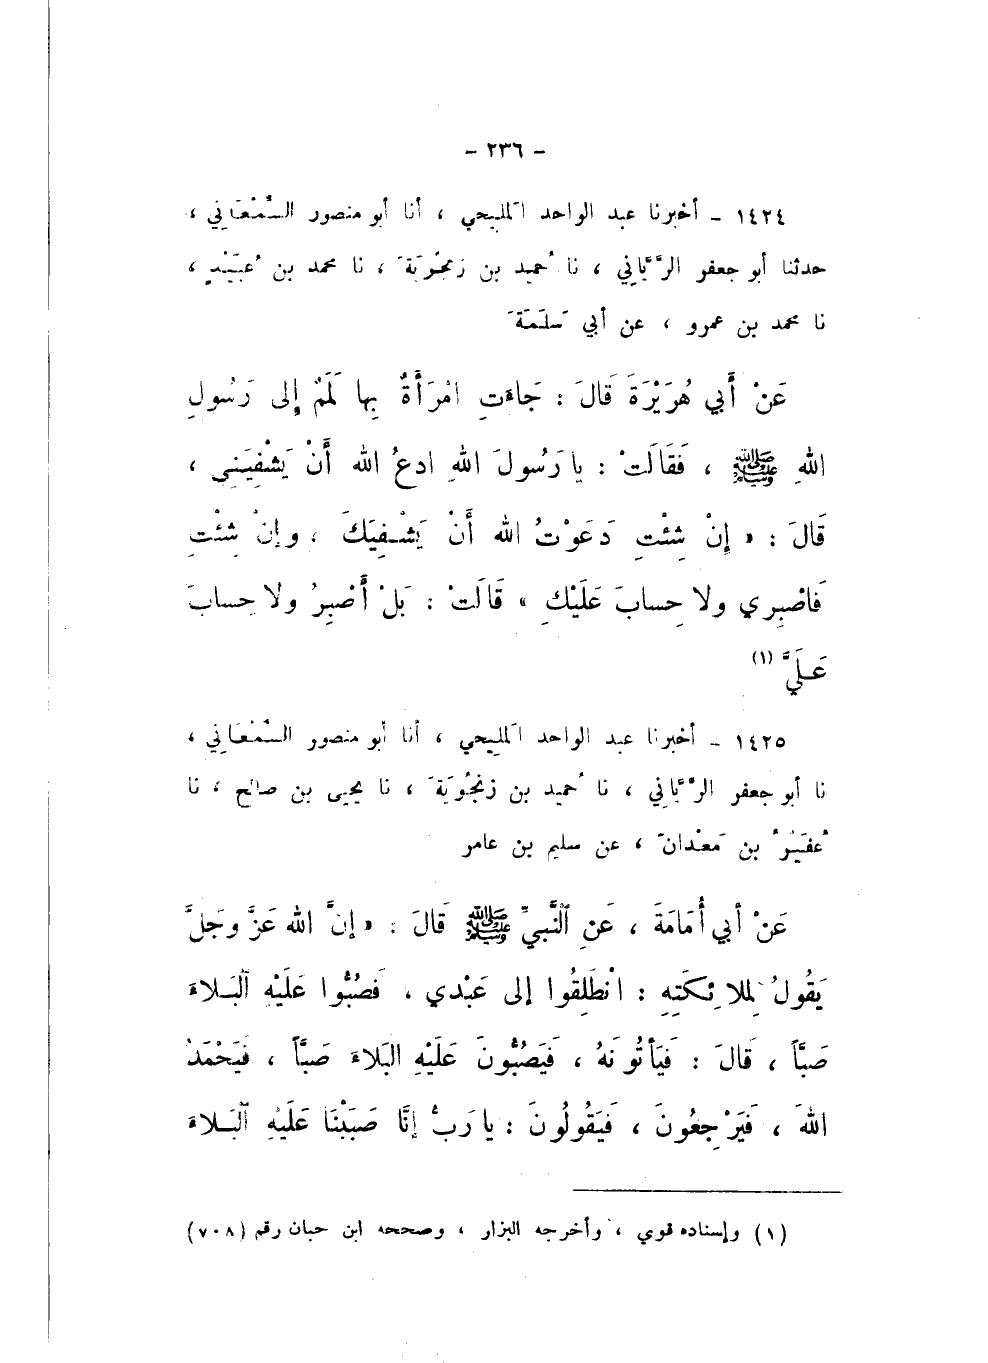 – ٢٣٦ –
١٤٢٤ – أخبرنا عبد الواحد المَليحي ، أنا أبو منصور السَّمْعَاني ،
حدثنا أبو جعفر الرَّيَّاني ، نا حُميد بن زَنجُوَيَهْ ، نا محمد بن عُبَيْدٍ ،
نا محمد بن عمرو ، عن أبي سَلَمَةَ
عَنْ أَبي هُرَيْرَةَ قَالَ : جَاءَتِ امْرَأَةٌ بِها لَمَمٌ إِلى رَسُولِ
اللهِ ﷺ ، فَقَالَتْ : يا رَسُولَ اللهِ ادعُ الله أَنْ يَشْفِيَنِي ،
قَالَ : « إِنْ شِئْتِ دَعَوْتُ الله أَنْ يَشْفِيَكِ ، وإِنْ شِئْتِ
فَاصْبِري ولا حِسابَ عَلَيْكِ » قَالَتْ : بَلْ أَصْبِرُ ولا حِسابَ
عَلَيَّ (١)
١٤٢٥ – أخبرنا عبد الواحد المَليحي ، أنا أبو منصور السَّمْعَاني ،
نا أبو جعفر الرَّيَّاني ، نا حُميد بن زنجُوَيَهْ ، نا يحيى بن صالح ، نا
عُفَيْرُ بن مَعْدانَ ، عن سليم بن عامر
عَنْ أَبي أُمَامَةَ ، عَنِ النَّبيِّ ﷺ قَالَ : « إِنَّ الله عَزَّ وَجَلَّ
يَقُولُ لِملائِكَتِهِ : انْطَلِقُوا إِلى عَبْدي ، فَصُبُّوا عَلَيْهِ البَلاءَ
صَبَّاً ، قَالَ : فَيَأْتُونَهُ ، فَيَصُبُّونَ عَلَيْهِ البَلاءَ صَبَّاً ، فَيَحْمَدُ
اللهَ ، فَيَرْجِعُونَ ، فَيَقُولُونَ : يا رَبُّ إِنَّا صَبَبْنَا عَلَيْهِ البَلاءَ
(١) وإسناده قوي ، وأخرجه البزار ، وصححه ابن حبان رقم (٧٠٨)